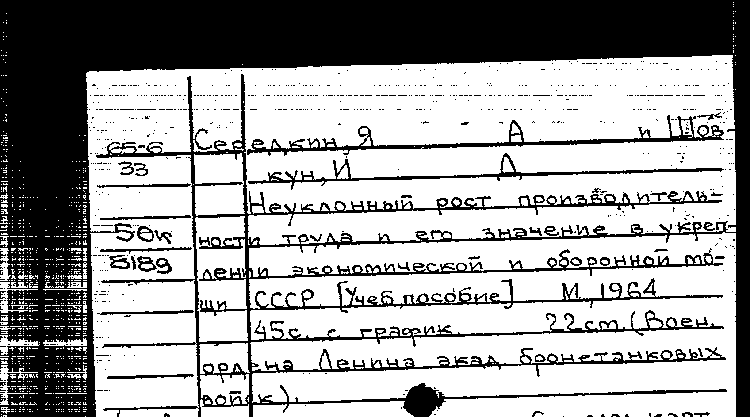 65-6 Середкин, Я А и Шов-
33 кун, И Д
Неуклонный рост производитель-
50к ности труда и его значение в укреп-
5189 лении экономической и оборонной мо-
щи СССР [Учеб. пособие] М., 1964
45 с. с график. 22 cm (Воен.
ордена Ленина акад бронетанковых
войск).